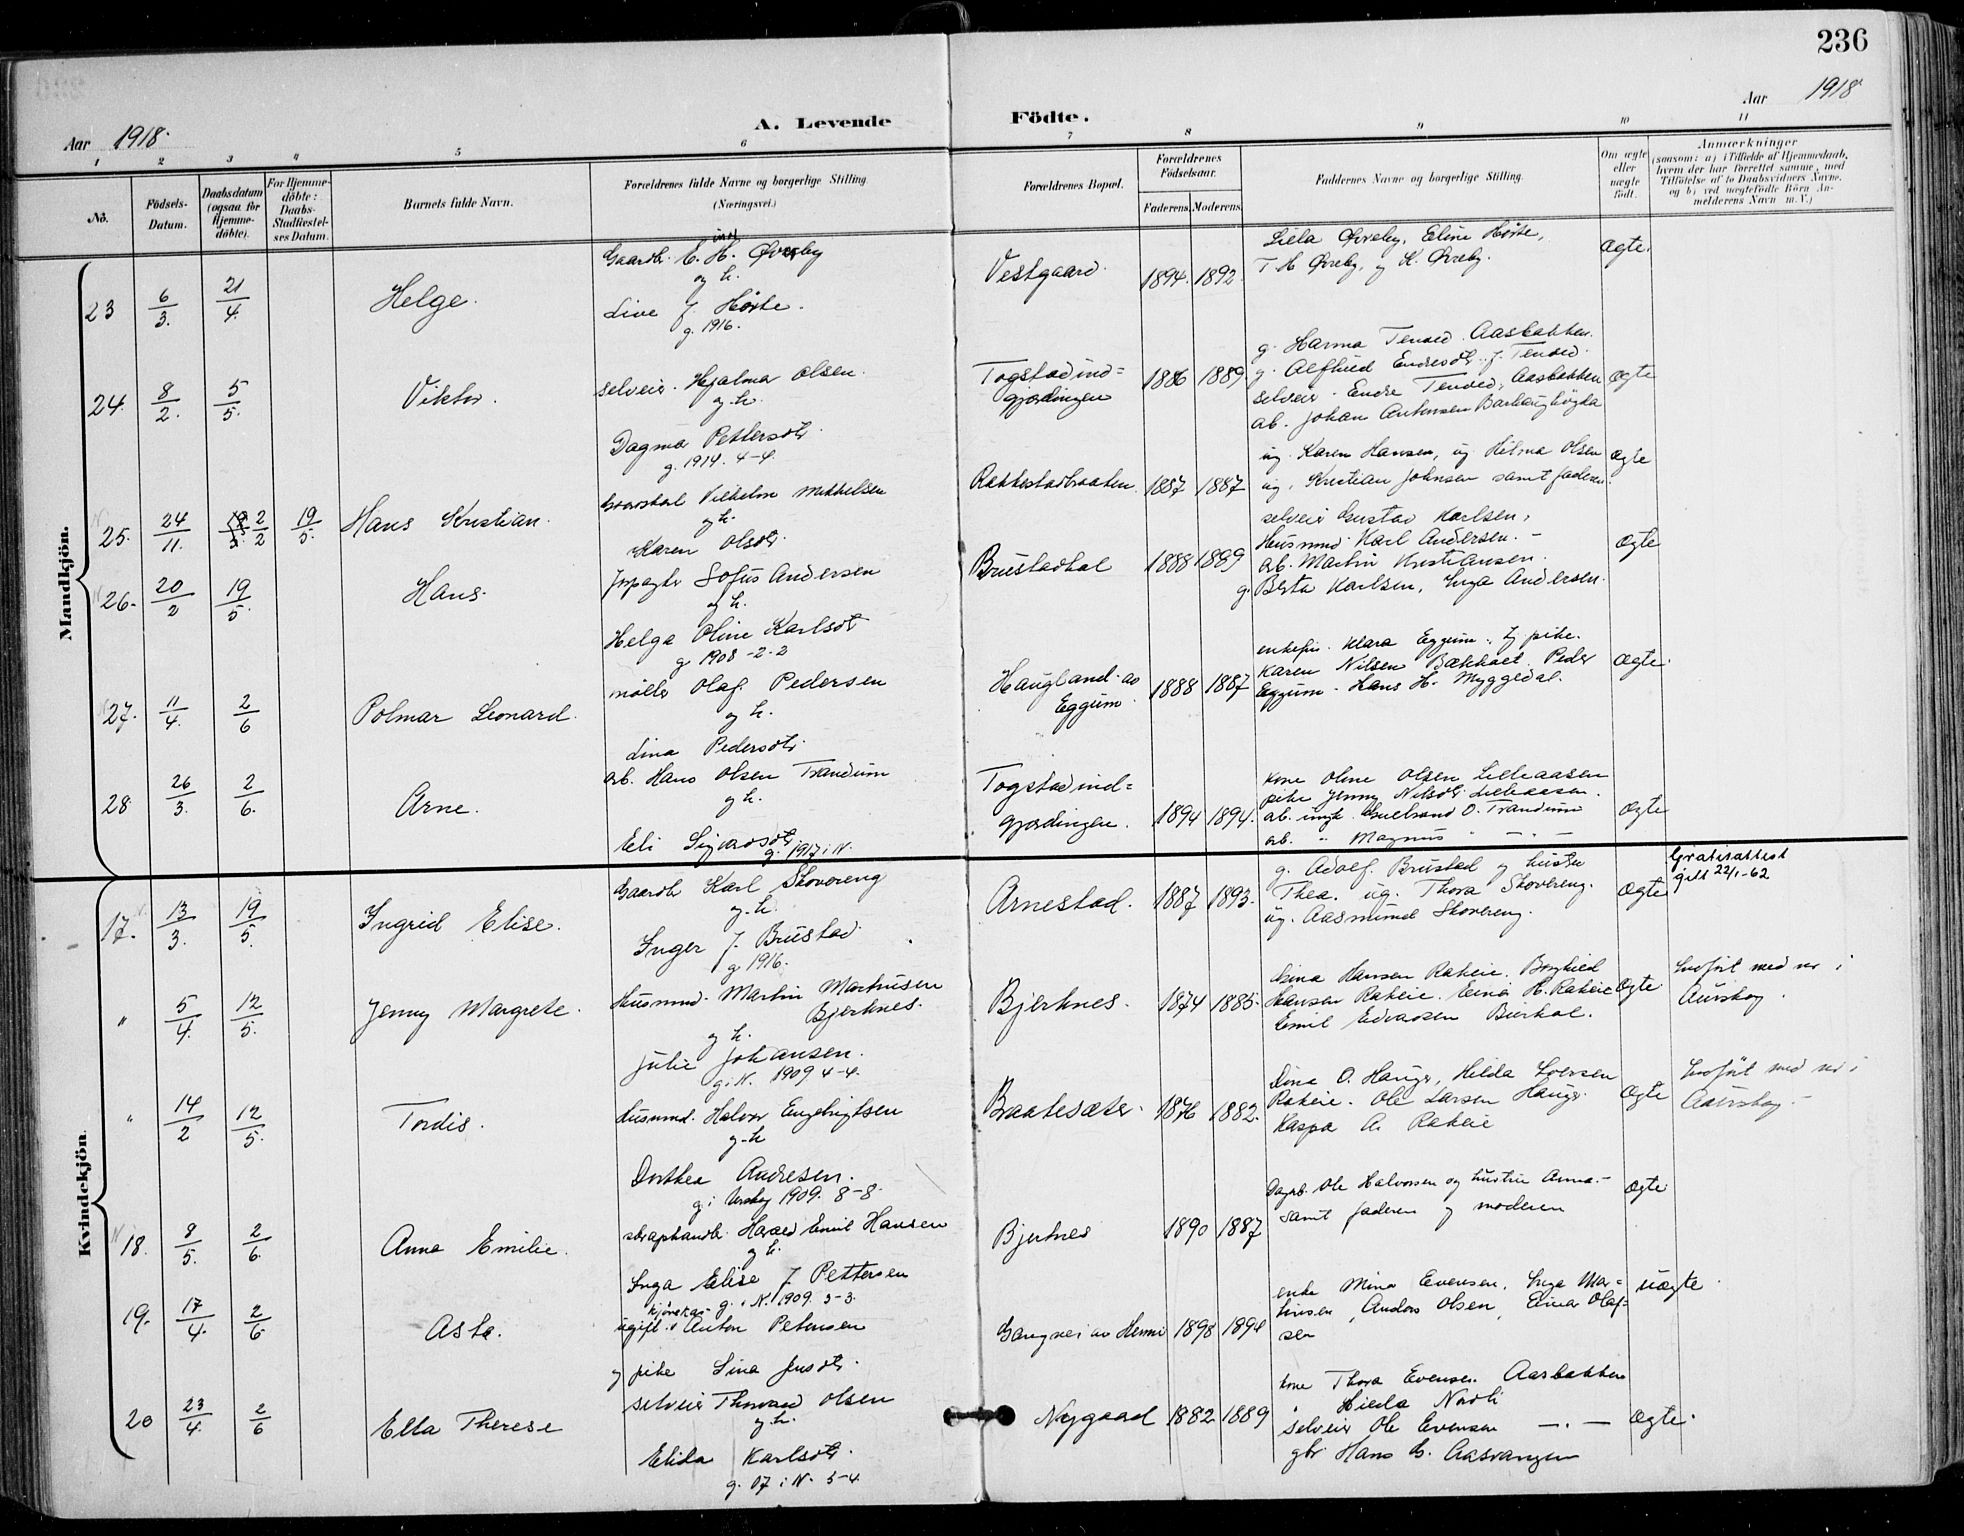 236
Aar 1918.
A. Levende Födte.
Aar 1918
1 2 3 4 5 6 7 8 9 10 11
No.
Födsels-Datum.
Daabsdatum (ogsaa for Hjemme-döbte).
For Hjemme-döbte: Daabs-Stadfæstel-ses Datum.
Barnets fulde Navn.
Forældrenes fulde Navne og borgerlige Stilling. (Næringsvei.)
Forældrenes Bopæl.
Forældrenes Fødselsaar.
Faderens. Moderens.
Faddernes Navne og borgerlige Stilling.
Om ægte eller uægte födt.
Anmærkninger
(saasom: a) i Tilfælde af Hjemmedaab, hvem der har forrettet samme, med Tilföielse af to Daabsvidners Navne, og b) ved uægtefödte Börn An-melderens Navn m.V.)
Mandkjön.
23 6/3. 21/4. Helge.
Gaardbr. E. H. Øvreby
og h.
Live f. Hørte.
g. 1916.
Vestgaard. 1894. 1892.
Øvreby, Eline Hørte,
T. H. Øvreby, og K. Øvreby.
Ægte.
24. 8/2. 5/5. Viktor.
selveier. Hjalmar Olsen.
og h.
Dagmar Pettersdtr.
g. 1914. 4-4.
Togstadind=
gjærdingen 1886 1889
g. Harma Tenoed. Aasbakken.
g. Endresdtr. f. Tenoed.
selveier. Endre Tenoed, Aasbakken
arb. Johan Antonsen
Ægte
25. 24/11. 2/2 19/5. Hans Kristian.
Vilhelm Mikkelsen
og h.
Karen Olsdtr.
Rakkestadbraaten. 1887 1887
ug. Karen Hansen, ug. Hilma Olsen
ug. Kristian Johnsen samt faderen.
Ægte
26. 20/2 19/5. Hans.
Sofus Andersen
og h.
Helga Oline Karlsdtr
g 1908-2-2
Brustadhal 1888 1899
selveier Gustav Karlsen,
Husmnd. Karl Andersen. -
arb. Martin Kristiansen.
g. Berta Karlsen, Inga Andersen.
Ægte
27. 11/4. 2/6 Polmar Leonard.
møller Olaf Pedersen
og h.
Lina Pedersdtr.
Haugland av
Eggum. 1888 1887
Klara Eggum. pike.
Karen Nilsen Bækkaet. Peder
Eggum. Hans H. Myggedal.
Ægte.
28. 26/3. 2/6. Arne.
arb. Hans Olsen Trandum
og h.
Eli Sigvardsdtr.
g. 1917 i N.
Togstadind=
gjærdingen. 1894 1894.
kone Oline Olsen Lilleaasen
pike Jenny Nilsdtr. Lilleaasen.
arb. ungk. Gulbrand O. Trandum
arb. " Magnus " - " -
Ægte
Kvindekjön.
17. 13/3. 19/5. Ingrid Elise.
Gaardbr Karl Skovereng
og h.
Inger f. Brustad.
g 1916.
Arnestad. 1887 1893.
g. Adolf Brustad og hustru
Thea. ug. Thora Skovereng.
ug. Aasmund Skovereng.
Ægte
Gratisattest
gitt 22/1-62
" 5/4. 12/5. Jenny Margrete.
Husmnd. Martin Martinsen
Bjerknes.
og h.
Julie Johansen.
g. i N. 1909 4-4.
Bjerknes. 1874 1885.
Hansen Rakeie. Borghild
Hansen Rakeie. Einar H. Rakeie
Emil Edvardsen
Ægte.
Indført med nr i
Aurskog.
" 14/2 12/5. Tordis.
Husmnd. Halvor Engebrigtsen
og h
Dorthea Andresen.
g. i 1909. 8-8.
Braatesæter. 1876 1882.
Dina O. Hauger, Hilda
Rakeie. Ole Larsen Hauger.
Kaspar A. Rakeie
Ægte
Indført med nr i
Aurskog.-
18. 8/5. 2/6. Anna Emilie.
skraphandlr. Harald Emil Hansen
og h.
Inga Elise f. Pettersen
g. i N. 1909. 3-3.
Bjerknes 1890 1887
Ole Halvorsen og hustru Anna.-
samt faderen og moderen
Ægte
19. 17/4. 2/6 Asta.
ugift. Anton Petersen
og pike Lina Jensdtr.
1898 1894
enke Mina Evensen. Inga Mar=
tinsen, Anders Olsen, Einar Olaf=
sen
uægte.
20 23/4. 2/6 Ella Therese
selveier Thorvald Olsen
og h.
Elida Karlsdtr.
g. 07 i N. 5-4
Nygaard 1882 1889
kone Thora Evensen Aasbakken
" Hilda Nordli
selveier Ole Evensen - " -
gbr. Hans G. Aasvangen
Ægte.